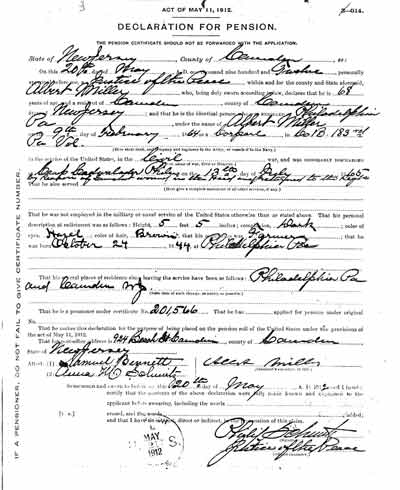 3
ACT OF MAY 11, 1912.
3-014.
DECLARATION FOR PENSION.
THE PENSION CERTIFICATE SHOULD NOT BE FORWARDED WITH THE APPLICATION.
State of New Jersey County of Camden ss:
On this 20th day of May, A. D. one thousand nine hundred and Twelve personally
appeared before me, a Justice of the Peace within and for the county and State aforesaid,
Albert Miller who, being duly sworn according to law, declares that he is 68
years of age, and a resident of Camden county of Camden
State of New Jersey and that he is the identical person who was at Philadelphia
Pa under the name of Albert Miller
9th day of February, 64 as Corporal in Co B. 183rd
Pa Vol.
in the service of the United States, in the Civil war, and was honorably discharged
at Camp Cadwalader Phila on the 13th day of July 1865
by Reason of
That he also served
That he was not employed in the military or naval service of the United States otherwise than as stated above. That his personal
description at enlistment was as follows: Height, 5 feet 5 inches; complexion, Dark; color of
eyes, Hazel; color of hair, Brown; that his occupation was Farmer; that he
was born October 24 1844, at Philadelphia Pa
That his several places of residence since leaving the service have been as follows: Philadelphia Pa
and Camden NJ
That he is a pensioner under certificate No. 201,566 That he has applied for pension under original
No.
That he makes this declaration for the purpose of being placed on the pension roll of the United States under the provisions of
the act of May 11, 1912.
That his post-office address is Camden county of Camden
State of New Jersey
Attest: (1) Samuel Bennett Albert Miller
(2) Anna H Schmitt
SUBSCRIBED and sworn to before me this 20th day of May, A. D. 1912 and I hereby
certify that the contents of the above declaration were fully made known and explained to the
applicant before swearing, including the words
erased, and the words added;
and that I have no interest, direct or indirect, in the prosecution of this claim.
[L. S.]
MAY
1912
S.
Philip Schmitt
Justice of the Peace
IF A PENSIONER, DO NOT FAIL TO GIVE CERTIFICATE NUMBER.